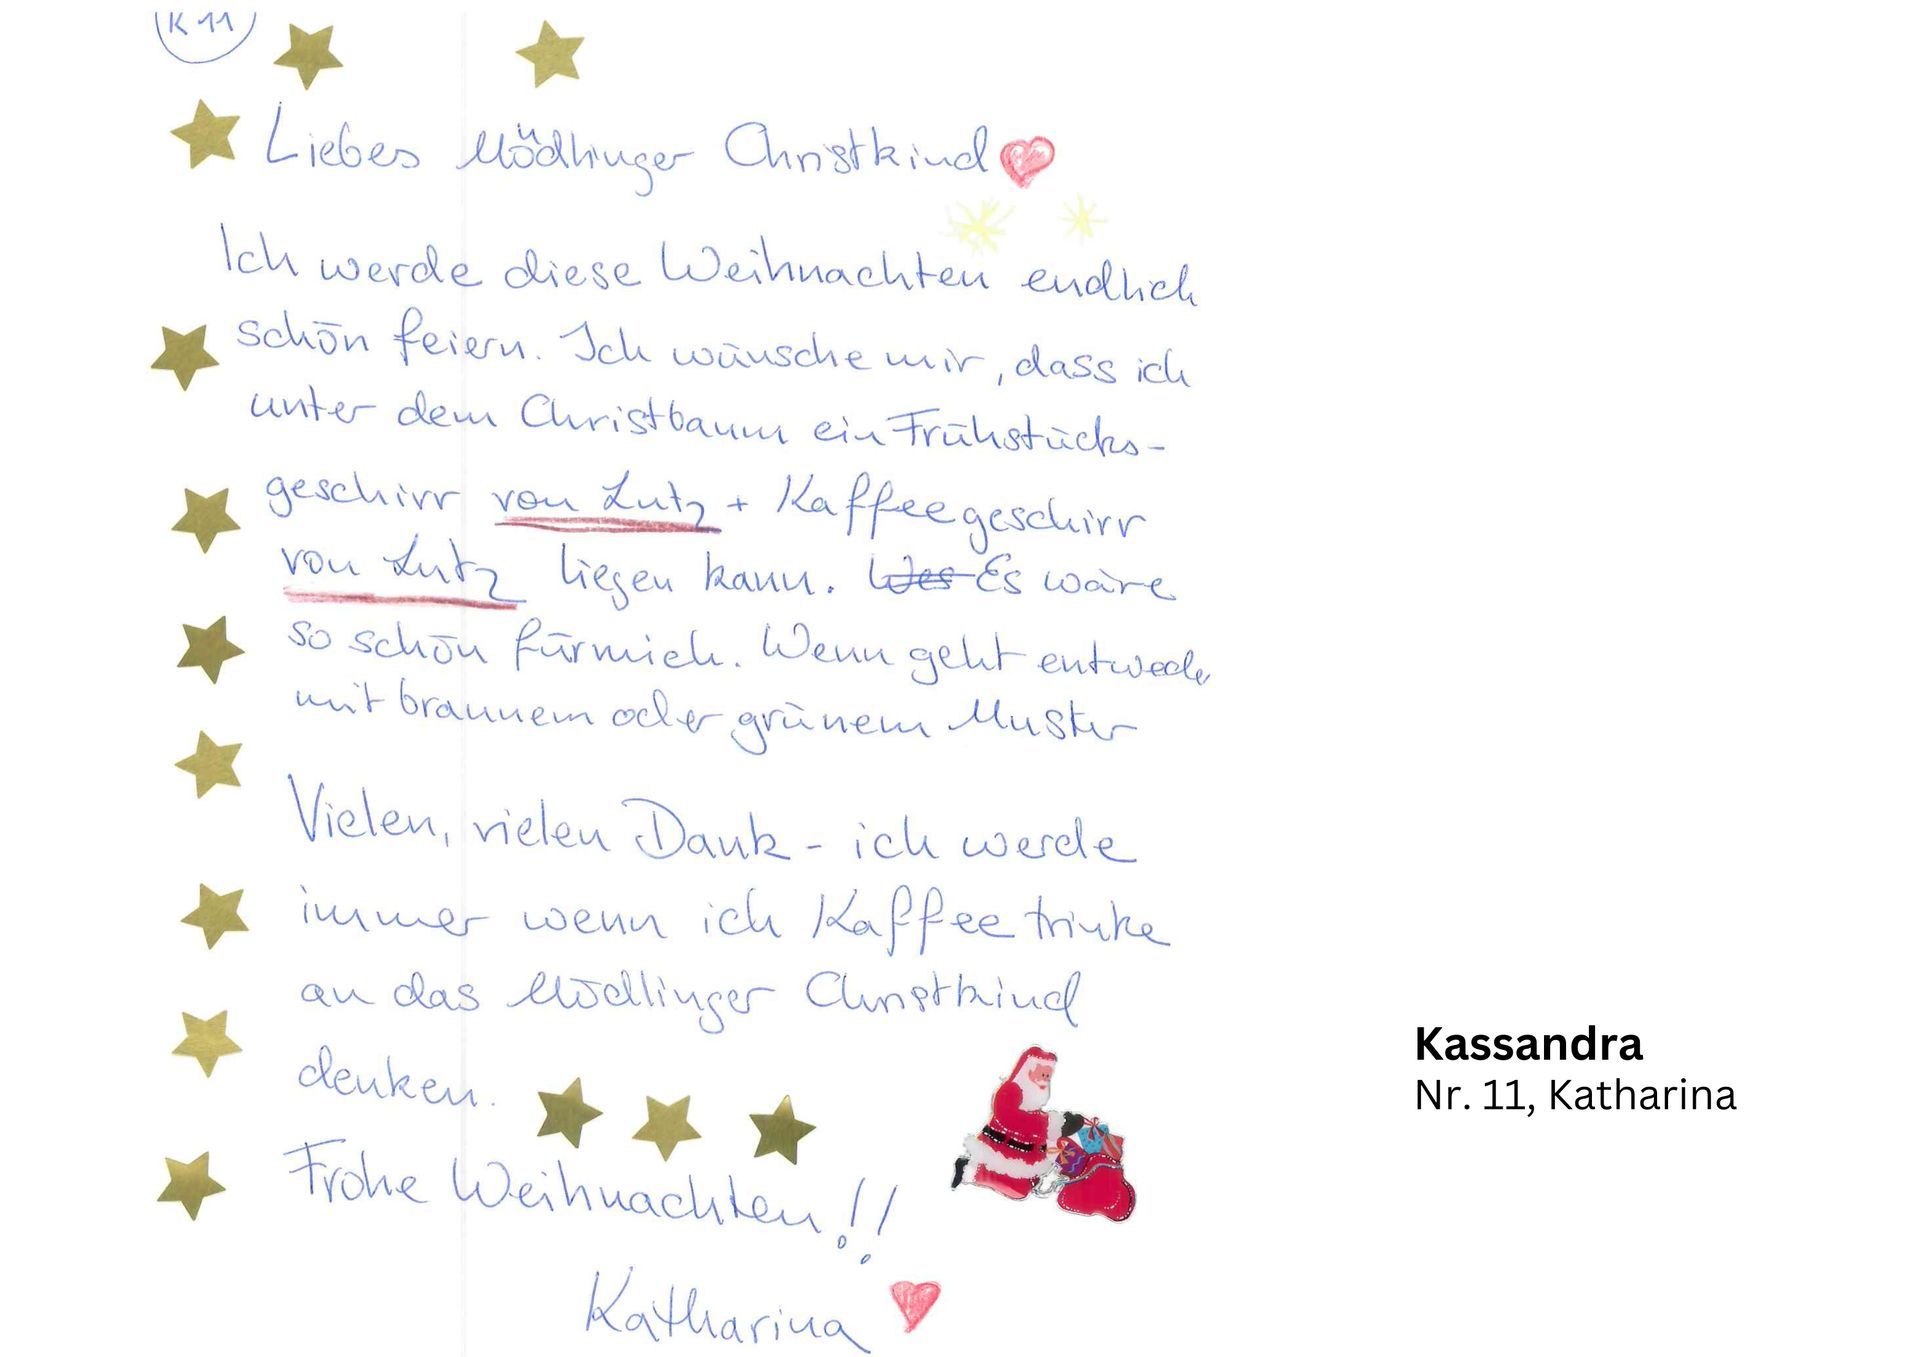 K 11
Liebes Mödlinger Christkind
Ich werde diese Weihnachten endlich
schön feiern. Ich wünsche mir, dass ich
unter dem Christbaum ein Frühstücks-
geschirr von Lutz + Kaffeegeschirr
von Lutz liegen kann. Wes Es wäre
so schön für mich. Wenn geht entweder
mit braunem oder grünem Muster
Vielen, vielen Dank - ich werde
immer wenn ich Kaffee trinke
an das Mödlinger Christkind
denken.
Frohe Weihnachten!!
Katharina
Kassandra
Nr. 11, Katharina